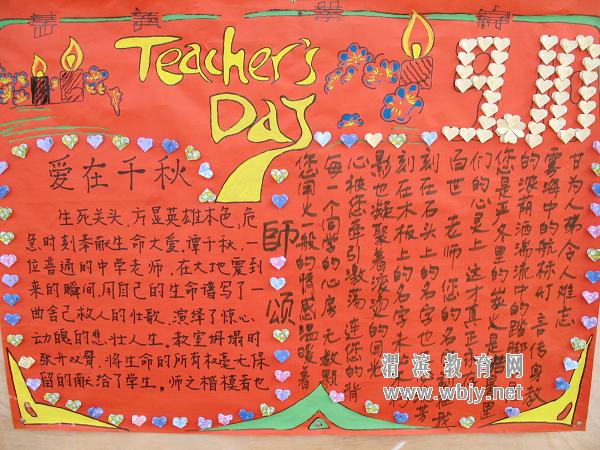 Teacher's
Day
9.10
爱在千秋
生死关头,方显英雄本色,危
急时刻奉献生命大爱,谭千秋,一
位普通的中学老师,在大地震到
来的瞬间,用自己的生命谱写了一
曲舍己救人的壮歌,演绎了惊心
动魄的悲壮人生。教室坍塌时
张开双臂,将生命的所有权毫无保
留的献给了学生。师之楷模者也
師颂
您用火一般的情感温暖着
每一个同学的心房 无数颗
心被您牵引激荡 连您的背
影也凝聚着滚烫的回忆
刻在木板上的名字未
刻在石头上的名字也 芳
百世 老师 您的名 刻在我
们的心是上 这才真正
您是严冬里的炭火 是 里
的 湍流中的踏脚
雲海中的航标灯 言传身教
甘为人梯令人难忘
渭滨教育网
www.wbjy.net